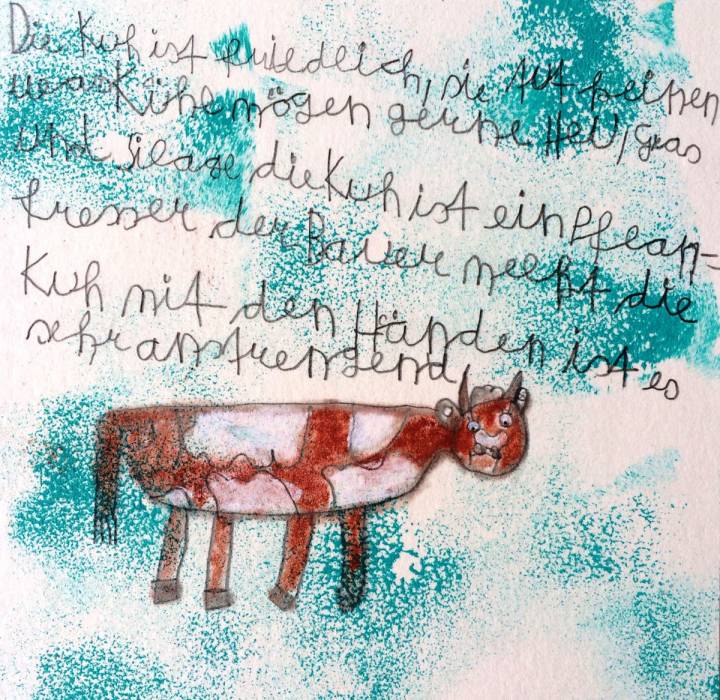 Die Kuh ist friedleich, sie tut keinen
was Kühe mögen gerne HeU, Gras
und silage die Kuh ist ein Pflean-
fresser der Bauer melkt die
Kuh mit den Händen ist es
sehr anstrengend